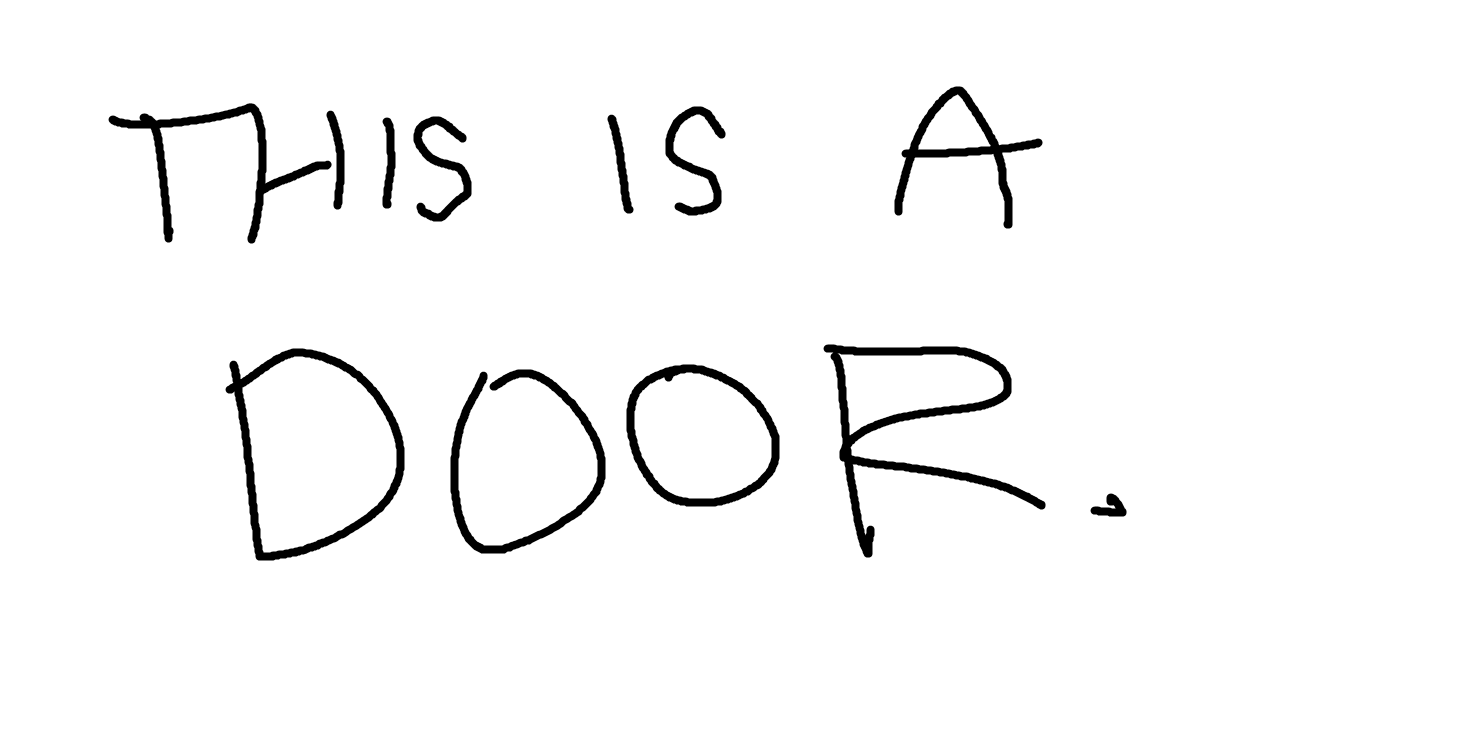 THIS IS A
DOOR.